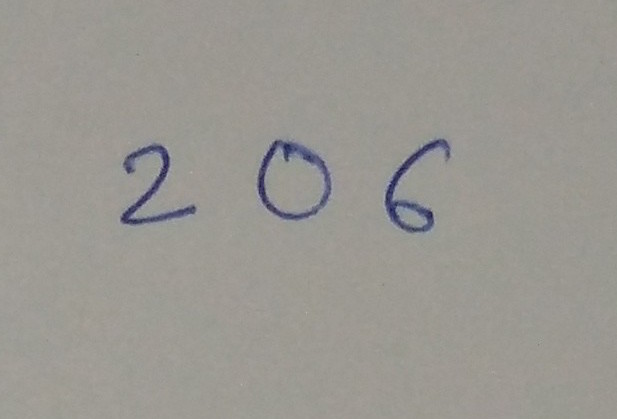 2 0 6